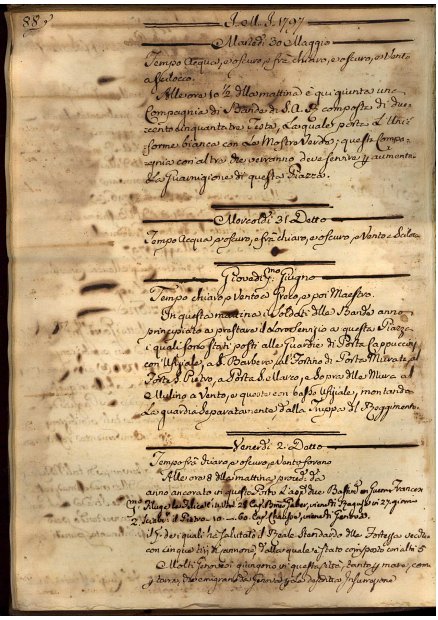 88
J. M. J. 1797
Martedì 30 Maggio
Tempo Acqua, e oscuro e frà chiaro, e oscuro, e Vento
a Scilocco.
Alle ore 10 1/2 della mattina è qui giunta una
Compagnia di Bande di S. A. R. composta di due-
cento cinquanta tre Teste, la quale porta l'Uni-
forme bianca con la Mostra Verde; questa Compa-
gnia con altre che verranno deve servire p aumentare
la Guarnigione di questa Piazza.
Mercoldì 31 Detto
Tempo Acqua e oscuro, e frà chiaro, e oscuro, e Vento a Scilocco
Giovedì p:mo Giugno
Tempo chiaro, e Vento a Greco, e poi Maestro.
In questa mattina i Soldati delle Bande anno
principiato a prestare il loro Servizio a questa Piazza,
i quali sono stati posti alle Guardie di Porta Cappuccini
con Ufiziale, a S. Barbera, al Fortino di Porta Murata, al
Forte S. Pietro, a Porta S. Marco, e Sopra alle Mura al
Mulino a Vento, e queste con basso Ufiziale, montando
la guardia separatamente dalla Truppa del Reggimento.
Venerdì 2. Detto
Tempo frà chiaro, e oscuro, e Vento forano
Alle ore 8 della mattina
anno ancorato in questo Porto due Bastim. en Guerra Francesi
28 Cap. viene di in 27. giorni
60. Cap. viene di
il p. dei quali hà Salutato il Reale Stendardo della Fortezza
con cinque tiri di Cannone, dalla quale è stato corrisposto con altri 5
Molti Genovesi giungono in questa Città, tanto p mare, come
p terra, che emigrano da Genova p la Insurrezione